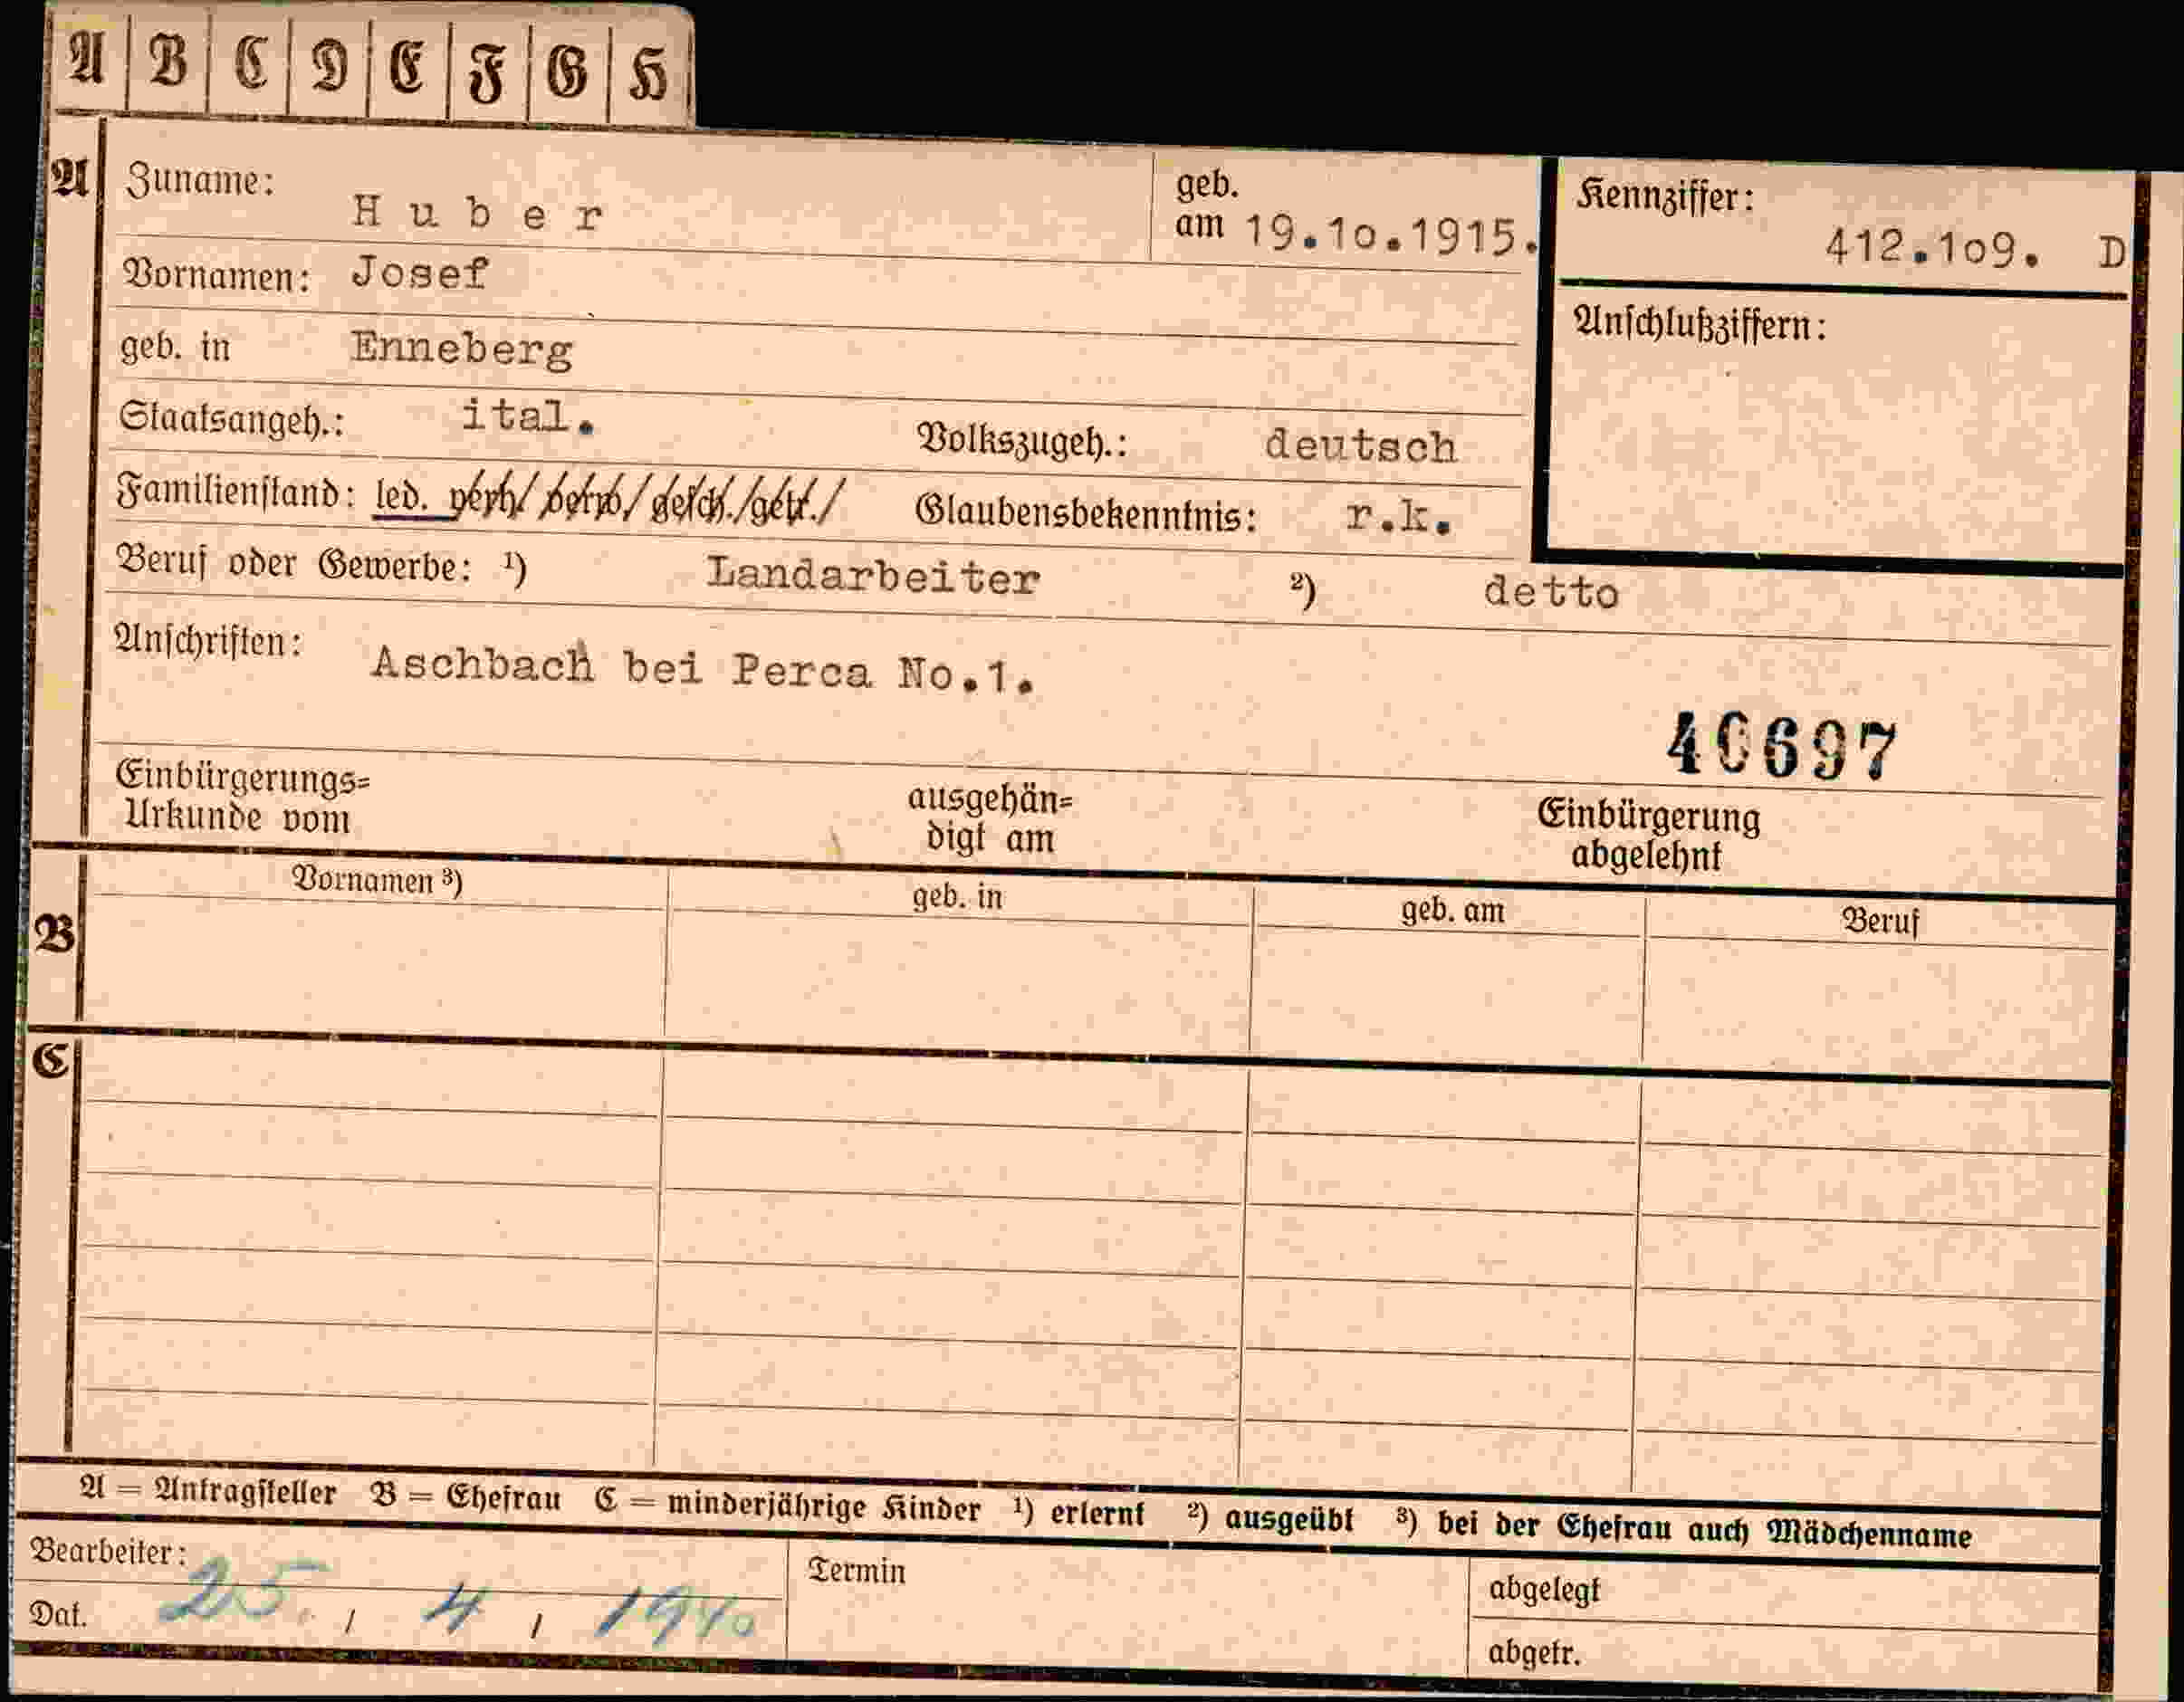 A B C D E F G H
A
Zuname: Huber geb. am 19.1o.1915. Kennziffer: 412.1o9. D
Vornamen: Josef
Anschlußziffern:
geb. in Enneberg
Staatsangeh.: ital. Volkszugeh.: deutsch
Familienstand: led. verh/ verw/ gesch./getr./ Glaubensbekenntnis: r.k.
Beruf oder Gewerbe: ¹) Landarbeiter ²) detto
Anschriften: Aschbach bei Perca No.1.
40697
Einbürgerungs=
Urkunde vom
ausgehän=
digt am
Einbürgerung
abgelehnt
B
Vornamen ³) geb. in geb. am Beruf
C
A = Antragsteller B = Ehefrau C = minderjährige Kinder ¹) erlernt ²) ausgeübt ³) bei der Ehefrau auch Mädchenname
Bearbeiter:
Dat. 25. / 4 / 1940
Termin
abgelegt
abgetr.